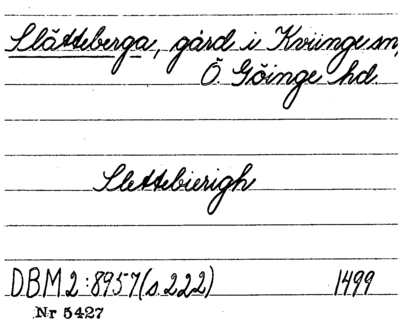 Slätteberga, gård i Kviinge sn,
Ö. Göinge hd.
Slettebierigh
DBM 2:8957 (s. 222) 1499
Nr 5427